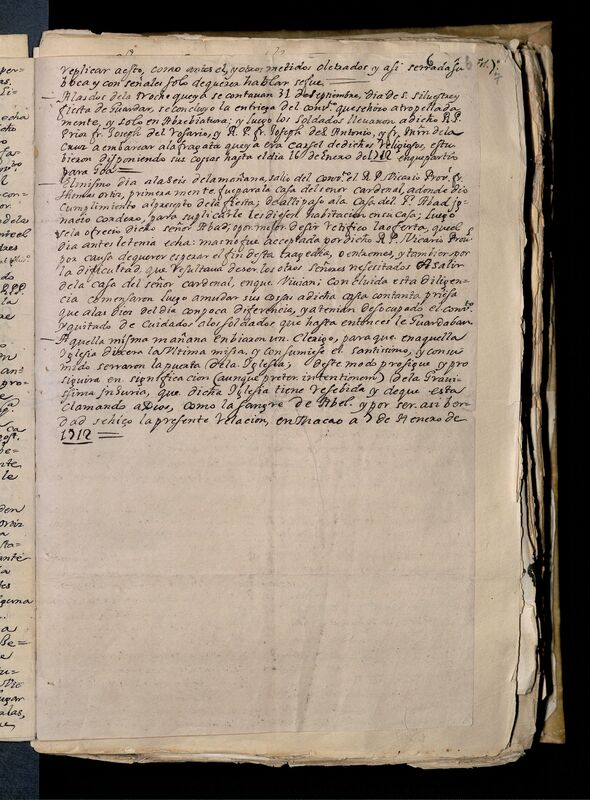 replicar aesto, como antes el, y otros metidos oletrados y asi serrada su
boca y con señales solo dequerer hablar sefue =
Alasdos dela Noche queya se contavan 31 de septiembre, Dia de S. silvestre y
fiesta de Guardar, se concluyo la entriega del conv.to que se hizo atropellada
mente, y solo en Abrebiatura; y luego los soldados llevaron a dicho R.P.
Prior fr. Joseph del Rosario, y R.P. fr. Joseph de S. Antonio, y fr. dela
Cruz a embarcar ala fragata que ya era carsel dedichos religiosos, estu
bieron disponiendo sus cosas hasta el dia 16 de enero del 1712 enque partio
para Goa =
El mismo dia alas seis dela mañana, salio del conv.to el R.P. Vicario Prov. fr.
Thomas ortis, primera mente fue para la casa del señor cardenal, adonde dio
Cumplimiento al presepto dela fiesta; De alli paso ala Casa del P. Abad ig-
nacio cordero, para suplicarle les diesen habitacion en su casa; luego
se la ofrecio dicho señor Abad, o por mejor desir retifico la oferta, que el
dia antes letenia echa: mas no fue acceptada por dicho R.P. Vicario Prov.l
por causa dequerer esperar el fin desta trajedia, o entremes, y tambien por
la dificultad, que resultava deser los otros señores nesesitados A salir
dela Casa del señor cardenal, enque Vivian; con cluida esta diligen-
cia comensaron luego amudar sus cosas adicha casa contanta priesa
que alas dies del dia con poca diferencia, ya tenian desocupado el conv.to
y quitado de cuidados alos soldados que hasta entonces le Guardaban
Aquella misma mañana enbiaron un Clerigo, para que enaquella
Iglesia dixera la Ultima misa. y consumiesse el santissimo, y consu
mido serraron la puerta dela Iglesia, deste modo prosigue y pro
siguira en significacion (aunque preter intentionem) dela Gravi-
ssima Injuria, que dicha Iglesia tiene resebida y deque esta
clamando a Dios, como la sangre de Abel. y por ser asi ber-
dad se hiço la presente relacion, en Macao a 3 de Henero de
1712 =